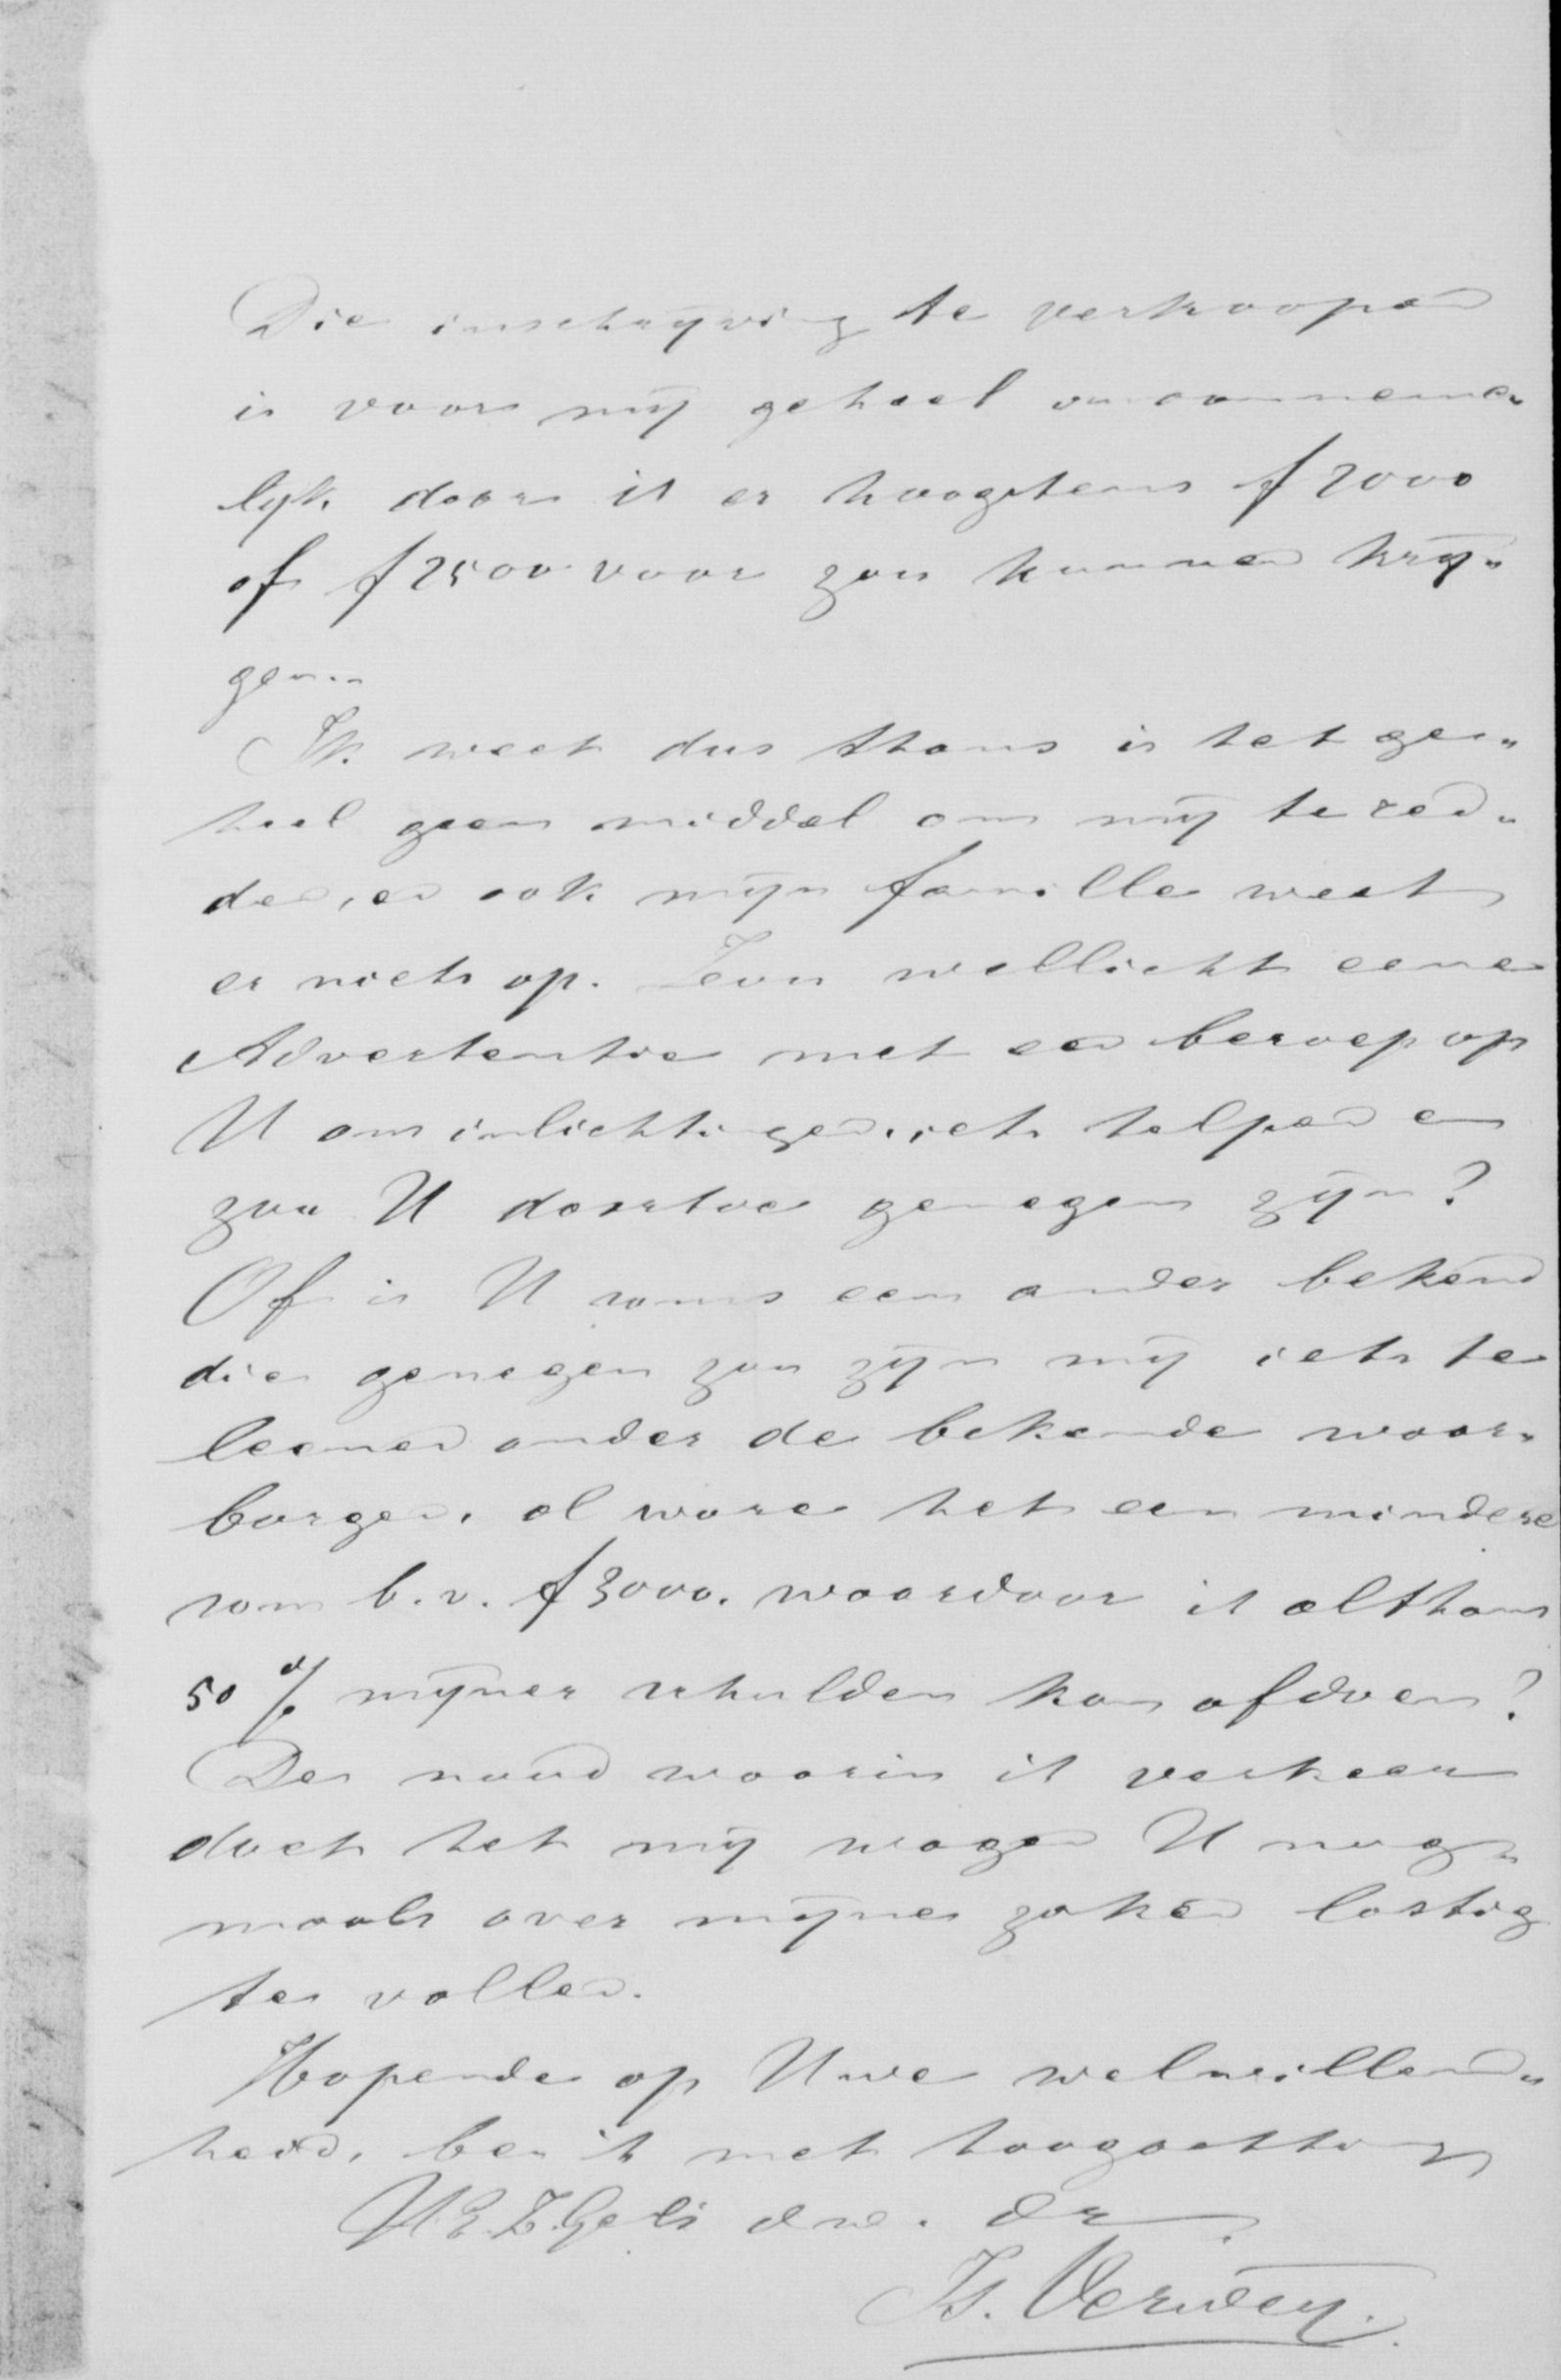 Die inschrijving te verkoopen
is voor mij geheel onaanneme„
lijk, daar ik er hoogstens f 2000
of f 2500 voor zou kunnen krij„
gen.
Ik weet dus thans in het ge„
heel geen middel om mij te red„
den, en ook mijn famille weet
er niets op. Zou wellicht eene
Advertentie met een beroep op
U om inlichtingen, iets helpen en
zou U daartoe genegen zijn?
Of is U soms een ander bekend
die genegen zou zijn mij iets te
leenen onder de bekende waar„
borgen, al ware het een mindere
som b.v. f 3000. waardoor ik althans
50 % mijner schulden kan afdoen?
Den nood waarin ik verkeer
doet het mij wagen U nog„
maals over mijne zaken lastig
te vallen.
Hopende op Uwe welwillend„
heid, ben ik met hoogachting
UE.Z.Gel: dw. dr
Is. Verwey.